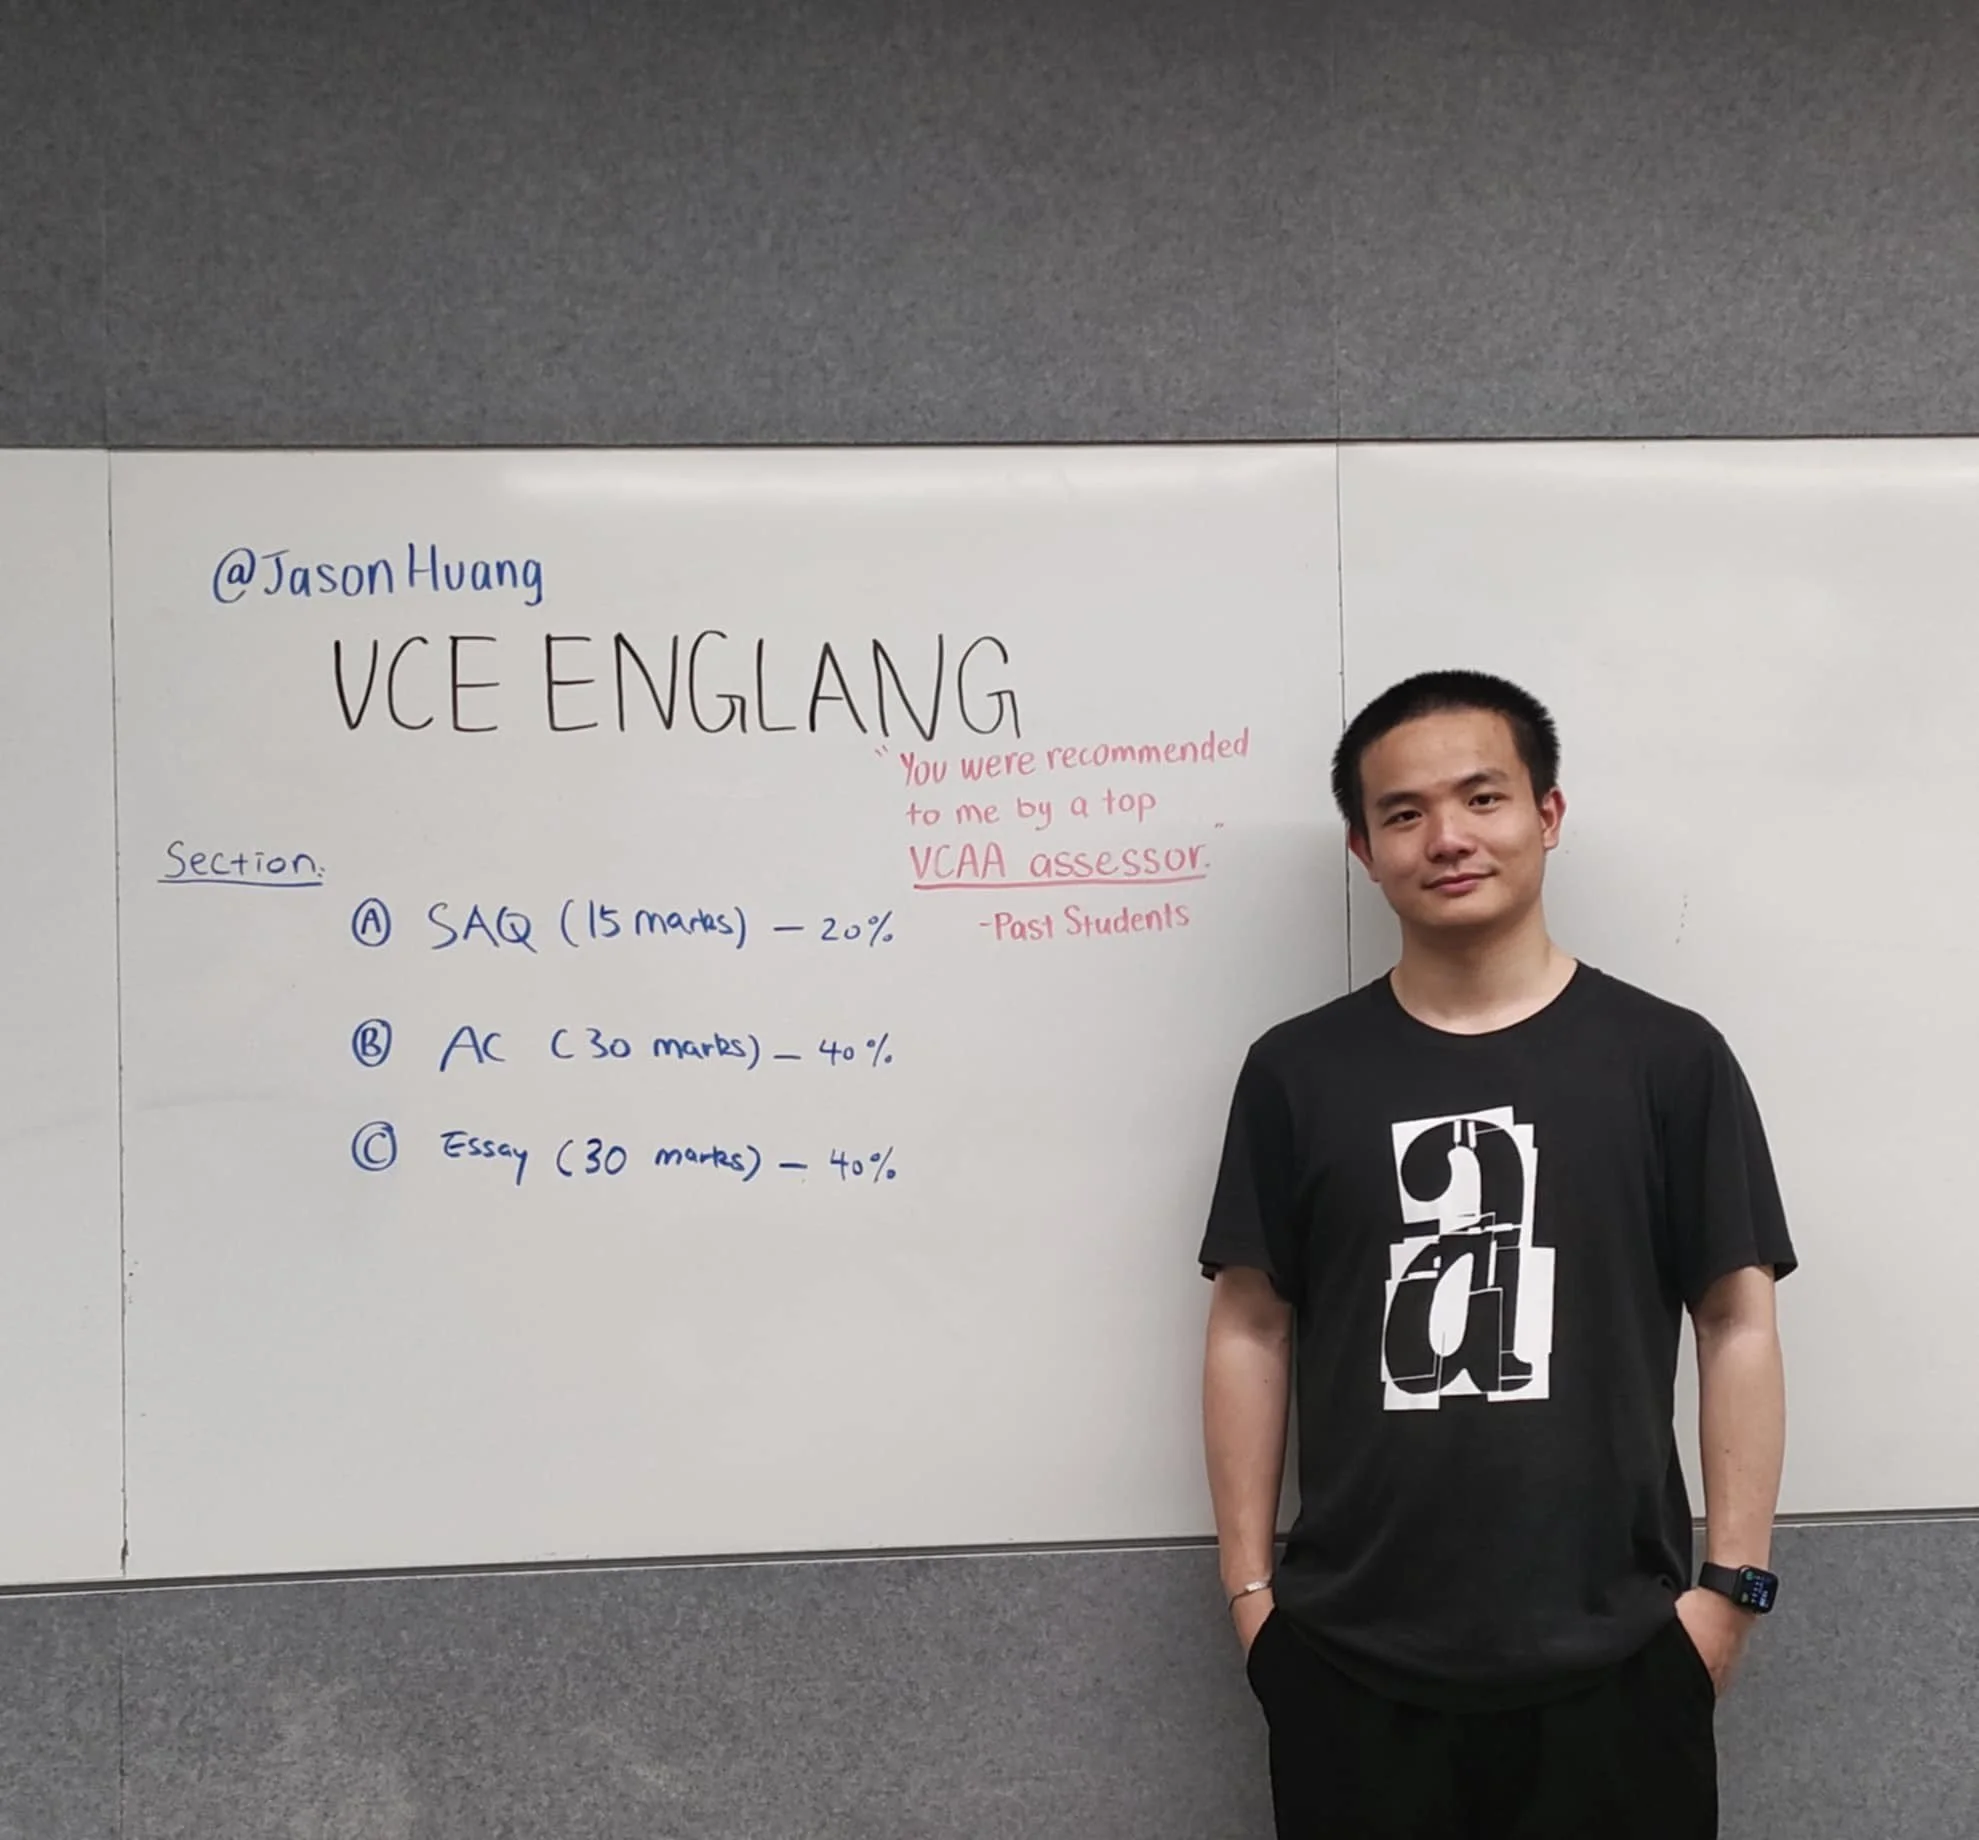 @Jason Huang
VCE ENGLANG
"You were recommended
to me by a top
VCAA assessor."
-Past Students
Section:
Ⓐ SAQ (15 marks) – 20%
Ⓑ AC (30 marks) – 40%
Ⓒ Essay (30 marks) – 40%
a
a